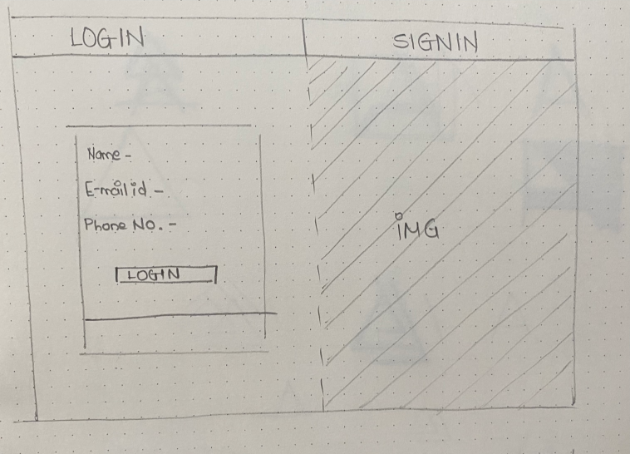 LOGIN
SIGNIN
Name -
E-mail id -
Phone No. -
LOGIN
IMG